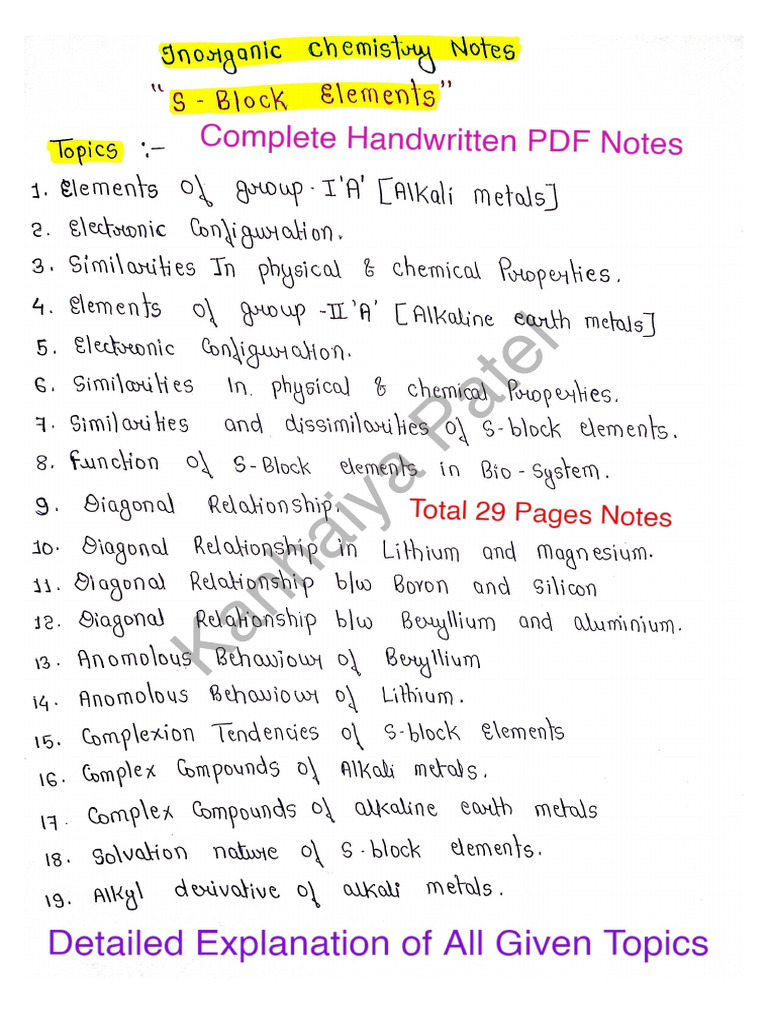 Inorganic Chemistry Notes
"S-Block Elements"
Topics :-
Complete Handwritten PDF Notes
1. Elements of group-I'A' [Alkali metals]
2. Electronic Configuration.
3. Similarities In physical & chemical Properties.
4. Elements of group-II'A' [Alkaline earth metals]
5. Electronic Configuration.
6. Similarities In physical & chemical Properties.
7. Similarities and dissimilarities of S-block elements.
8. Function of S-Block elements in Bio-System.
9. Diagonal Relationship.
Total 29 Pages Notes
10. Diagonal Relationship in Lithium and Magnesium.
11. Diagonal Relationship b/w Boron and Silicon
12. Diagonal Relationship b/w Beryllium and aluminium.
13. Anomolous Behaviour of Beryllium
14. Anomolous Behaviour of Lithium.
15. Complexion Tendencies of S-block Elements
16. Complex Compounds of Alkali metals.
17. Complex Compounds of alkaline earth metals
18. Solvation nature of S-block elements.
19. Alkyl derivative of alkali metals.
Kanhaiya Patel
Detailed Explanation of All Given Topics